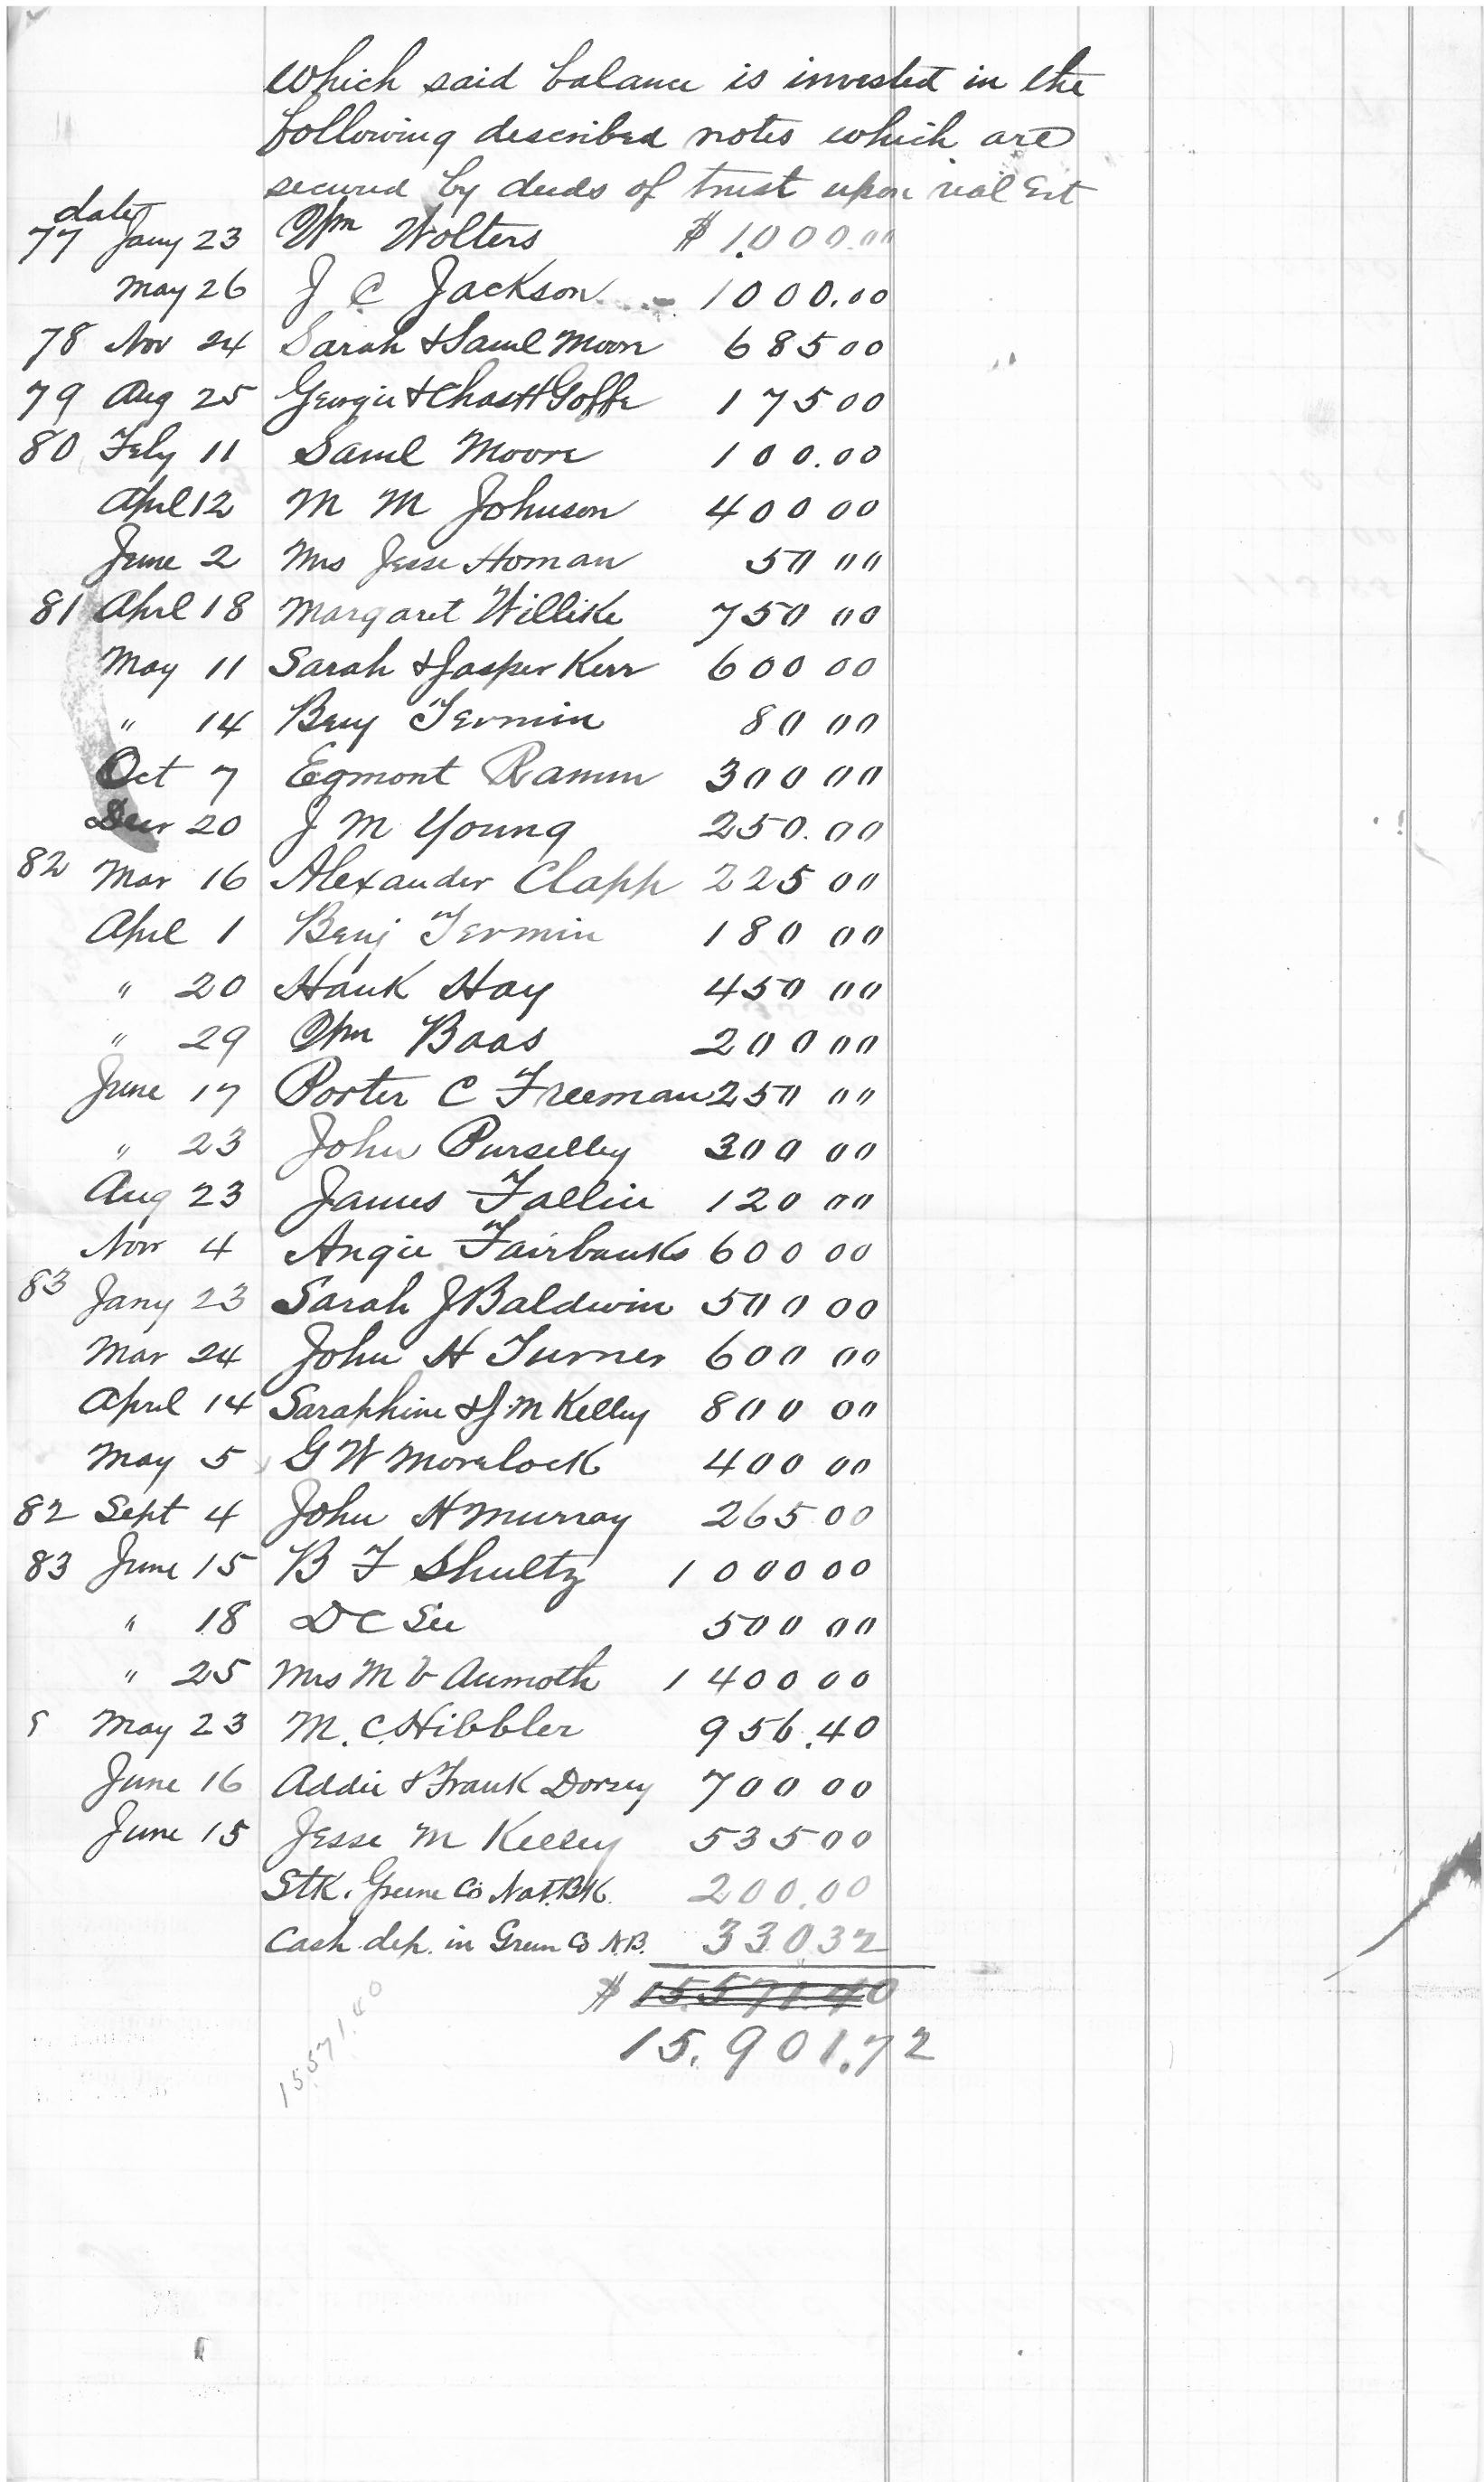 which said balance is invested in the
following described notes which are
secured by deeds of trust upon real Est
date
77 Jany 23 Wm Wolters $ 1.000.00
May 26 J C Jackson 1000.00
78 Nov 24 Sarah & Saml Moore 685 00
79 Aug 25 Georgie & Chas H Goffe 175 00
80 Feby 11 Saml Moore 100.00
Aprl 12 M M Johnson 400 00
June 2 Mrs Jesse Homan 50 00
81 Aprl 18 Margaret Willike 750 00
May 11 Sarah & Jasper Kerr 600 00
" 14 Benj Fermin 80 00
Oct 7 Egmont Ramm 300 00
Decr 20 J M Young 250.00
82 Mar 16 Alexander Clapp 225 00
Aprl 1 Benj Fermin 180 00
" 20 Hank Hay 450 00
" 29 Wm Baas 200 00
June 17 Porter C Freeman 250 00
" 23 John Purselley 300 00
Aug 23 James Fallin 120 00
Nov 4 Angie Fairbanks 600 00
83 Jany 23 Sarah J Baldwin 500 00
Mar 24 John H Turner 600 00
April 14 Saraphine & J.M Kelley 800 00
May 5 G W Morelock 400 00
82 Sept 4 John H Murray 265 00
83 June 15 B F Shultz 1000 00
" 18 D C See 500 00
" 25 Mrs M V Aumoth 1400 00
May 23 M. C. Hibbler 956.40
June 16 Addie & Frank Dorsey 700 00
June 15 Jesse M Kelley 535 00
Stk. Greene Co Nat. Bk. 200.00
Cash dep. in Green Co N.B. 330.32
$ 15.571.40
15.901.72
15571.40